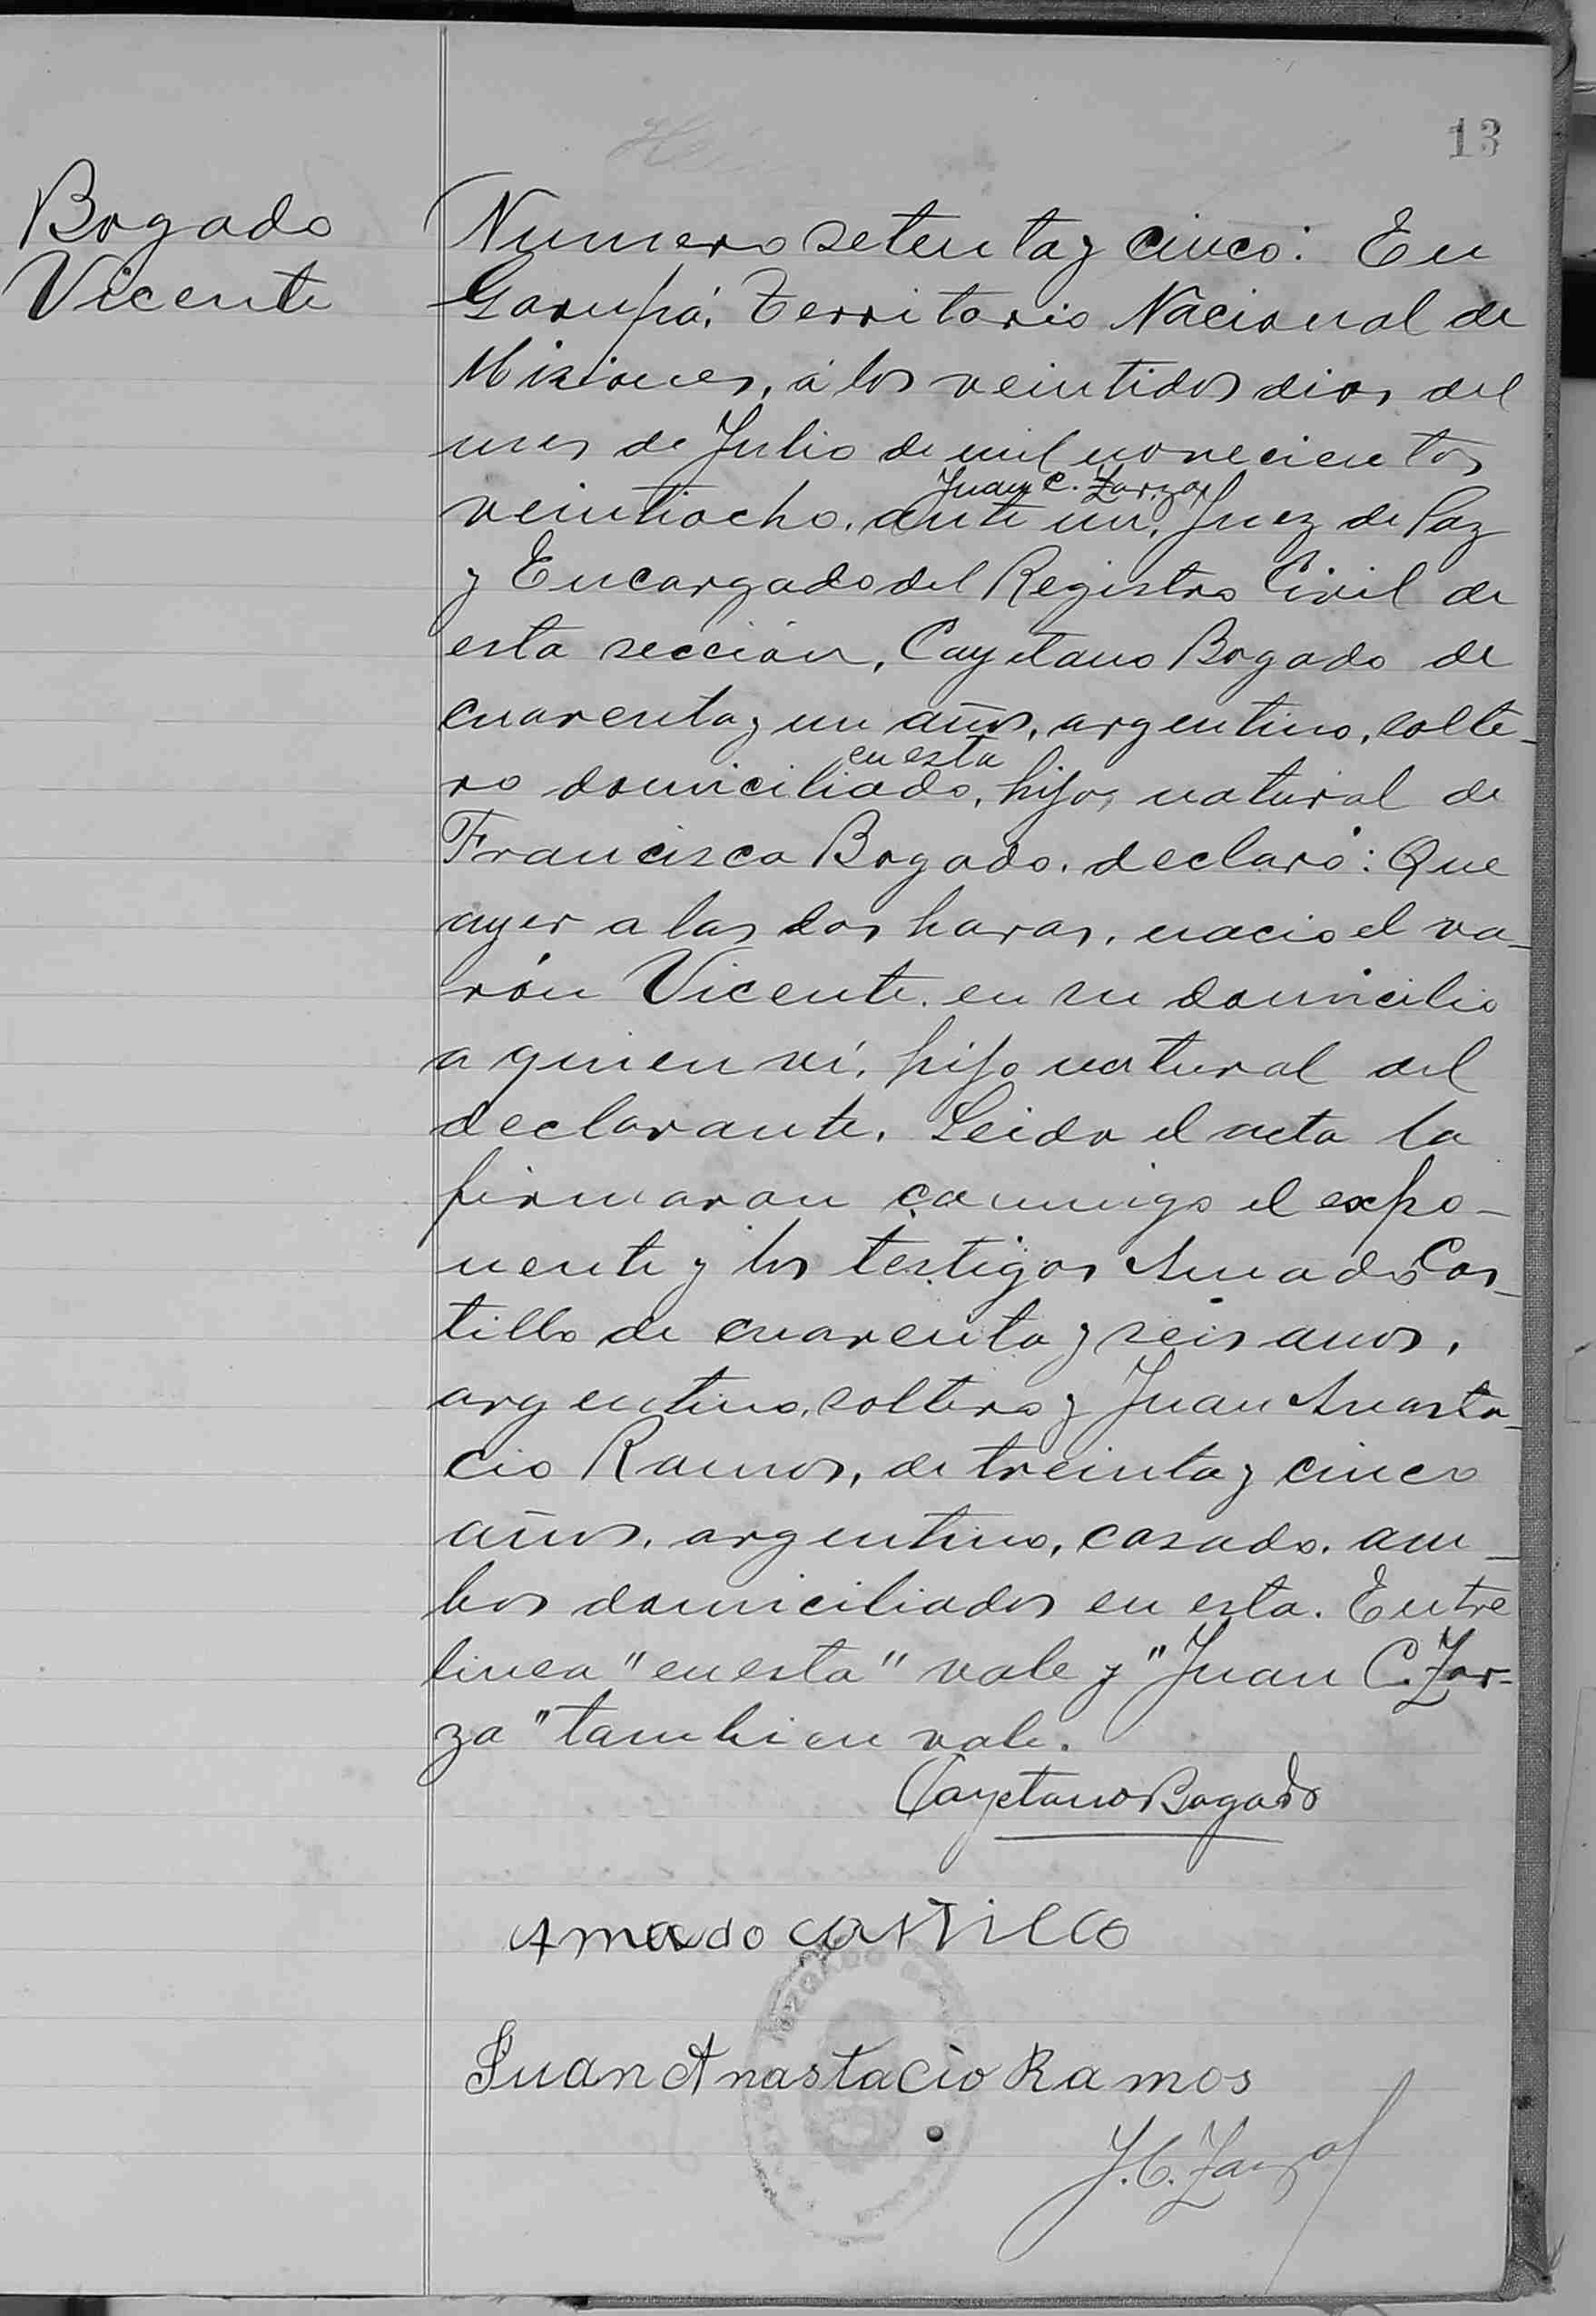 13
Bogado
Vicente
Numero setenta y cinco: En
Garupá, Territorio Nacional de
Misiones, á los veintidos dias del
mes de Julio de mil novecientos
Juan C. Zarza
veintiocho. ante mi, Juez de Paz
y Encargado del Registro Civil de
esta sección, Cayetano Bogado de
cuarenta y un años, argentino, solte-
en esta
ro domiciliado, hijo natural de
Francisca Bogado. declaró: Que
ayer a las dos horas, nacio el va-
rón Vicente en su domicilio
a quien ví, hijo natural del
declarante. Leida el acta la
firmaron conmigo el expo-
nente y los testigos Amado Cas-
tillo de cuarenta y seis anos,
argentino, soltero y Juan Anasta-
cio Ramos, de treinta y cinco
años, argentino, casado. am-
bos domiciliados en esta. Entre
linea "en esta" vale y "Juan C. Zar-
za" tambien vale.
Cayetano Bogado
Amado Castillo
Juan Anastacio Ramos
J. C. Zarza
JUZGADO